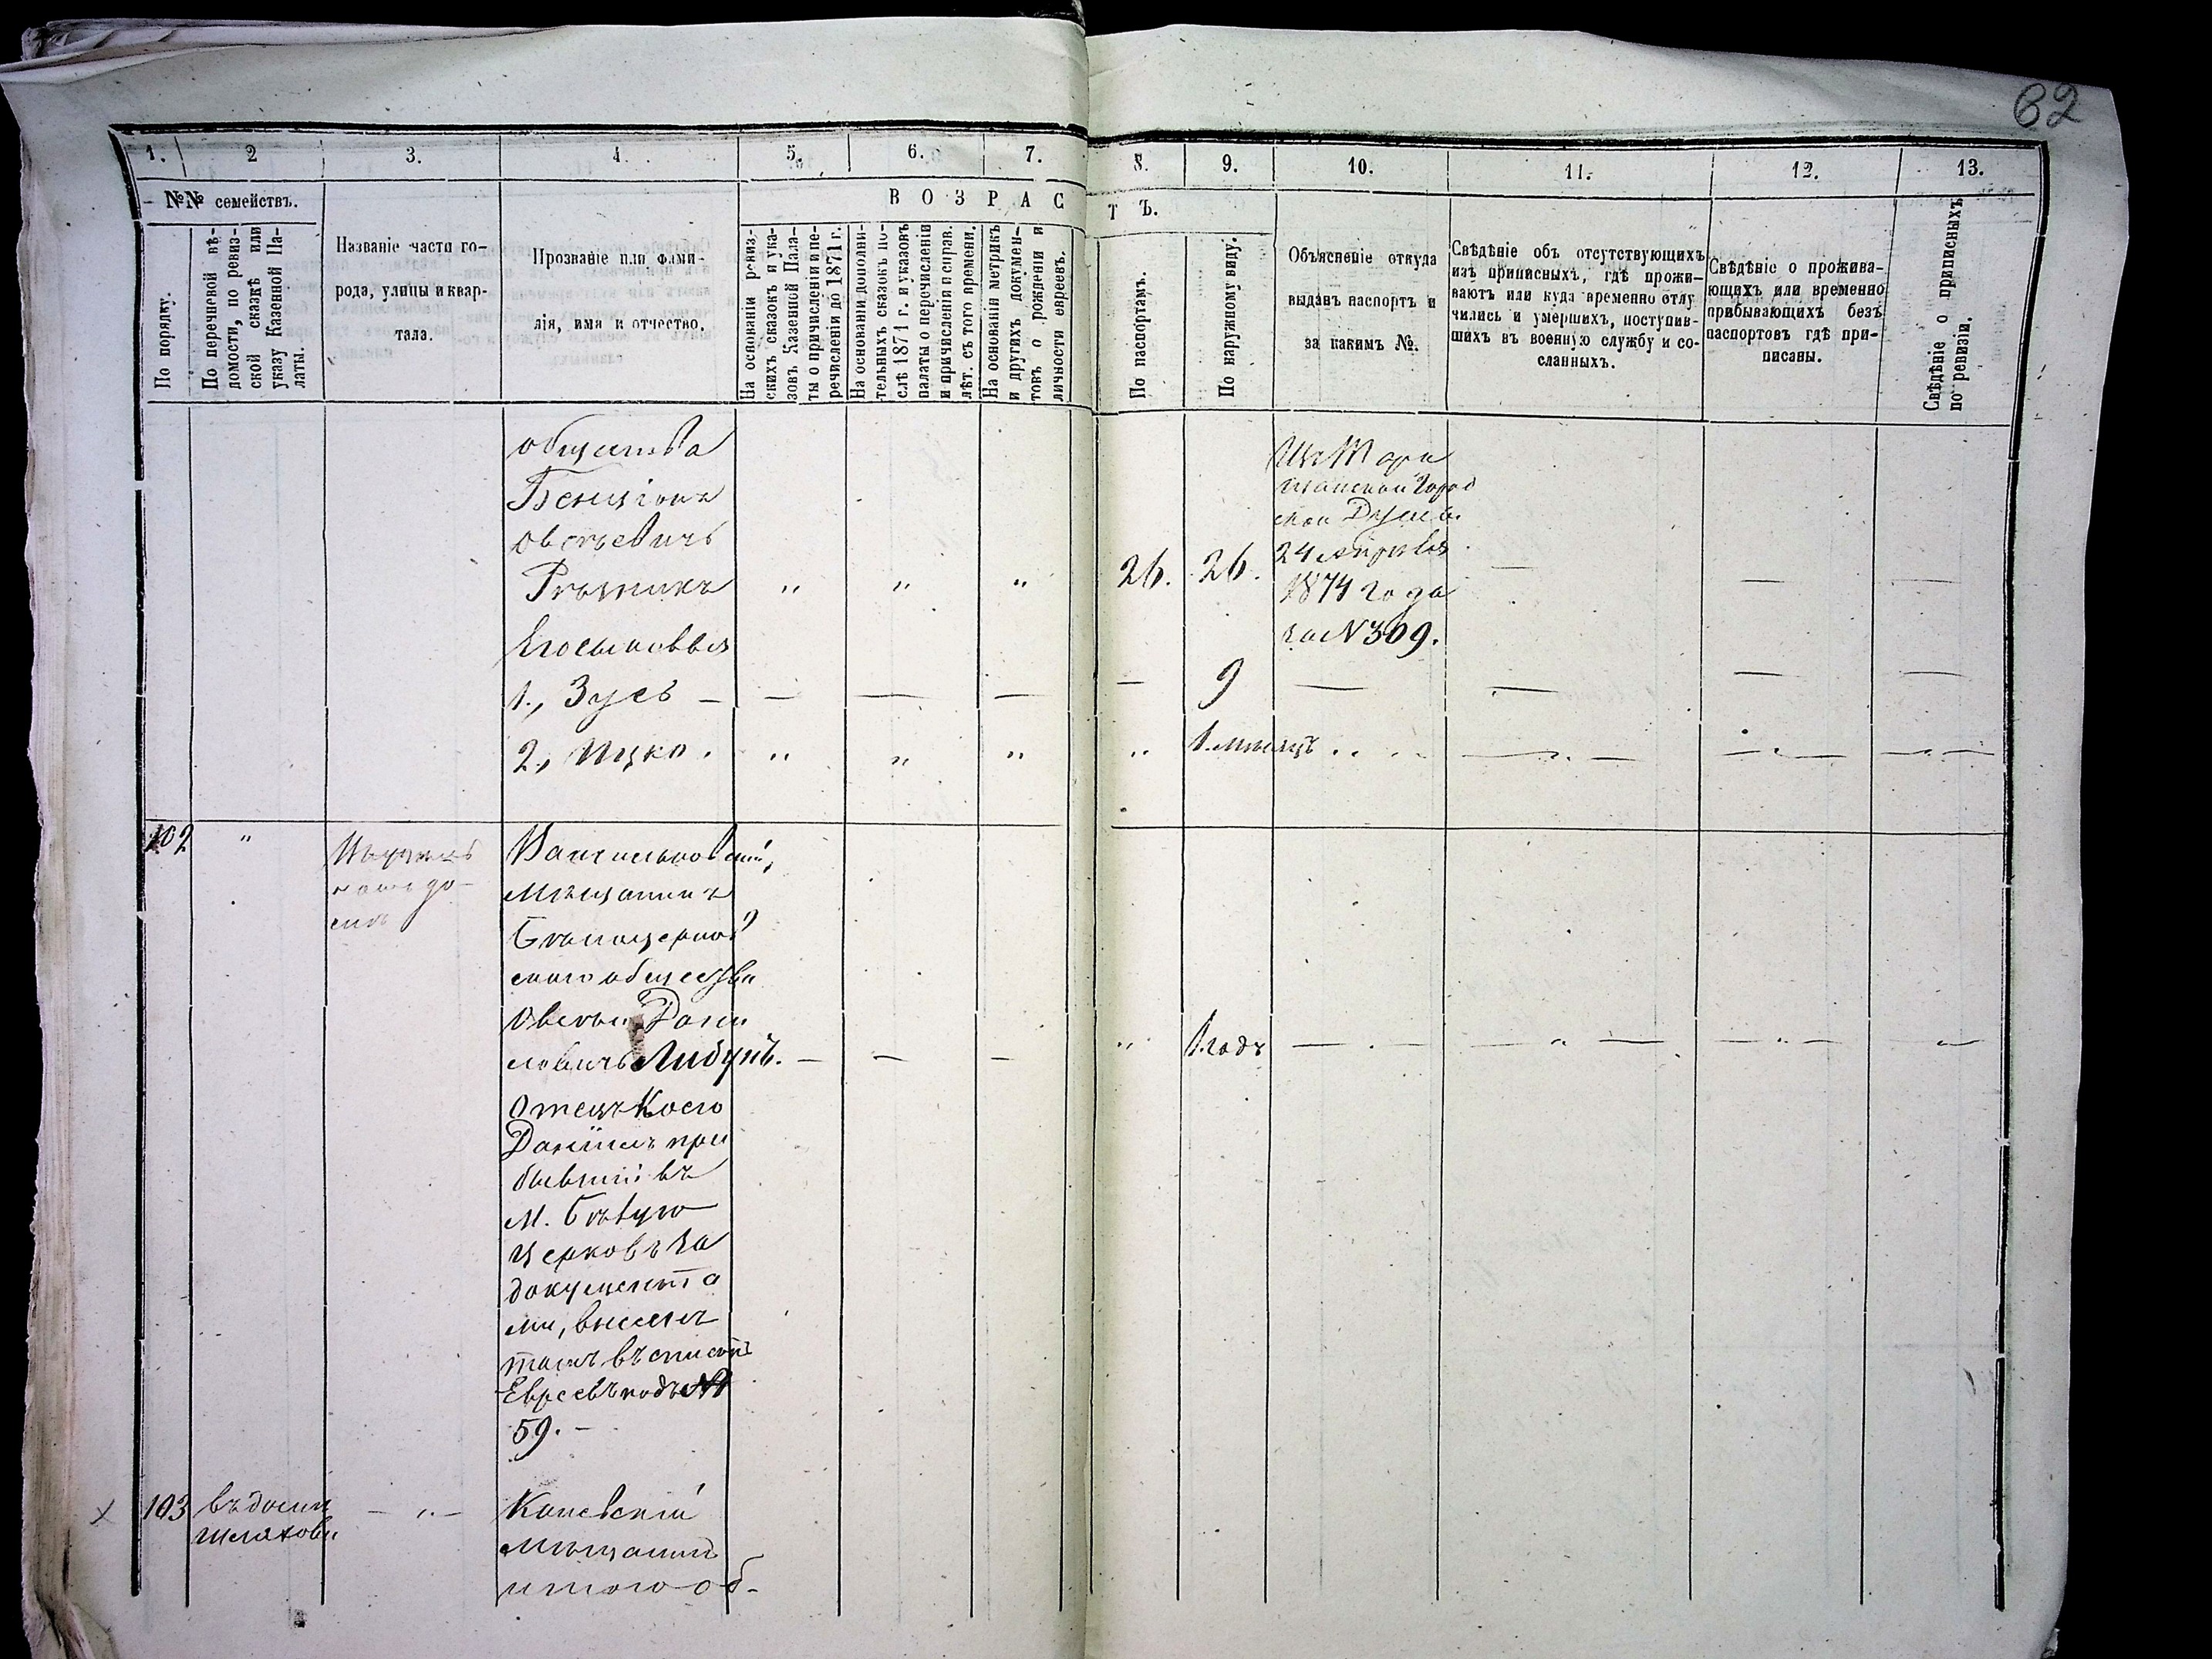 62
1. 2 3. 4. 5. 6. 7. 8. 9. 10. 11. 12. 13.
№№ семействъ.
ВОЗРАСТЪ.
По порядку.
По перечневой вѣ-
домости, по ревиз-
ской сказкѣ или
указу Казенной Па-
латы.
Названіе части го-
рода, улицы и квар-
тала.
Прозваніе или фами-
лія, имя и отчество.
На основаніи ревиз-
скихъ сказокъ и ука-
зовъ Казенной Пала-
ты о причисленіи и пе-
речисленіи до 1871 г.
На основаніи дополни-
тельныхъ сказокъ по-
слѣ 1871 г. и указовъ
палаты о перечисленіи
и причисленіи и справ.
лѣт. съ того времени.
На основаніи метрикъ
и другихъ докумен-
товъ о рожденіи и
личности евреевъ.
По паспортамъ.
По наружному виду.
Объясненіе откуда
выданъ паспортъ и
за какимъ №.
Свѣдѣніе объ отсутствующихъ
изъ приписныхъ, гдѣ прожи-
ваютъ или куда временно отлу
чились и умершихъ, поступив-
шихъ въ военную службу и со-
сланныхъ.
Свѣдѣніе о прожива-
ющихъ или временно
прибывающихъ безъ
паспортовъ гдѣ при-
писаны.
Свѣдѣніе о приписныхъ
по ревизіи.
общества
Бенціонъ
Овсѣевичъ
" " " 26. 26.
Изъ Тара
щанской Город
ской Думы
24
1874 года
за N 309.
Его сыновья
1., Зусь — — — — — 9 — — — —
2., Ицко. " " " " 1. мѣсяцъ
102 "
Васильковскій,
мѣщанинъ
Бѣлоцерков
скаго общества
Овсѣй Дани
ловичъ Либунъ. — — — " 1. годъ — " — " — " —
Отецъ Коего
Даніилъ при
бывшій въ
м. Бѣлую
церковь за
документа
ми, внесенъ
тамъ въ списокъ
Евреевъ подъ №
59. —
х 103 въ домѣ — " — Каневскій
мѣщанинъ
и того об-